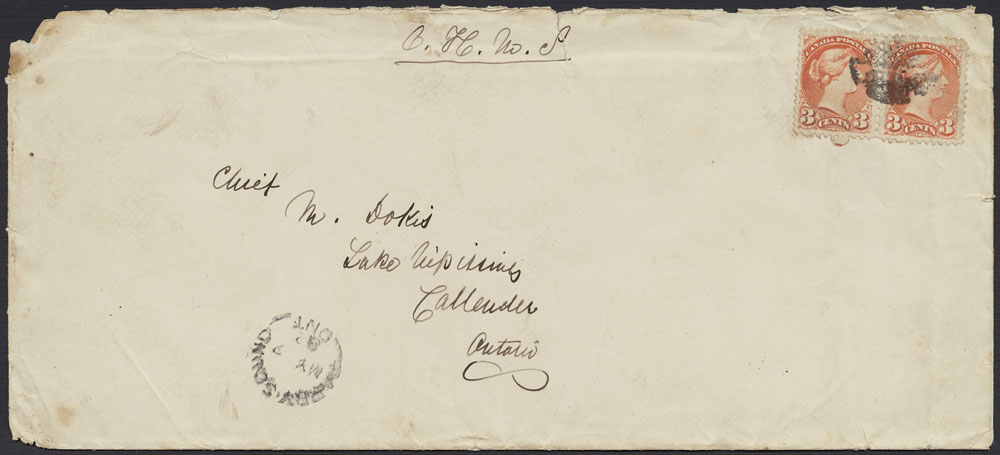 O. H. M. S.
CANADA POSTAGE
3 CENTS 3
3 CENTS 3
Chief
M. Dokis
Lake Nipissing
Callender
Ontario
PARRY SOUND
ONT
MY 7
92